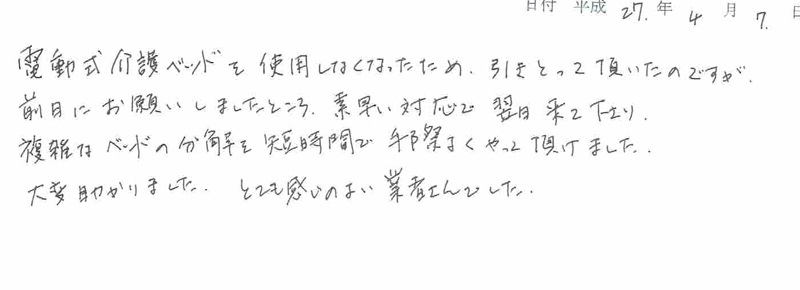 日付 平成 27. 年 4 月 7. 日
電動式介護ベッドを使用しなくなったため、引きとって頂いたのですが、
前日にお願いしましたところ、素早い対応で翌日来て下さり、
複雑なベッドの分解を短時間で手際よくやって頂けました。
大変助かりました。とても感じのよい業者さんでした。